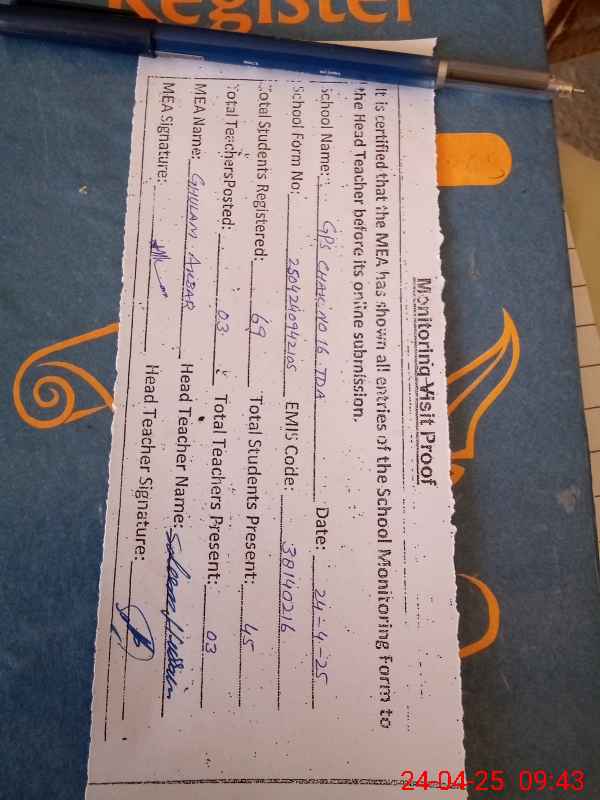 Register
Monitoring Visit Proof
It is certified that the MEA has shown all entries of the School Monitoring Form to
the Head Teacher before its online submission.
School Name: GPS CHAK NO 16 TDA Date: 24-4-25
School Form No: 2504240942105 EMIS Code: 38140216
Total Students Registered: 69 Total Students Present: 45
Total TeachersPosted: 03 Total Teachers Present: 03
MEA Name: GHULAM AKBAR Head Teacher Name: Hussain
MEA Signature: Head Teacher Signature:
24-04-25 09:43